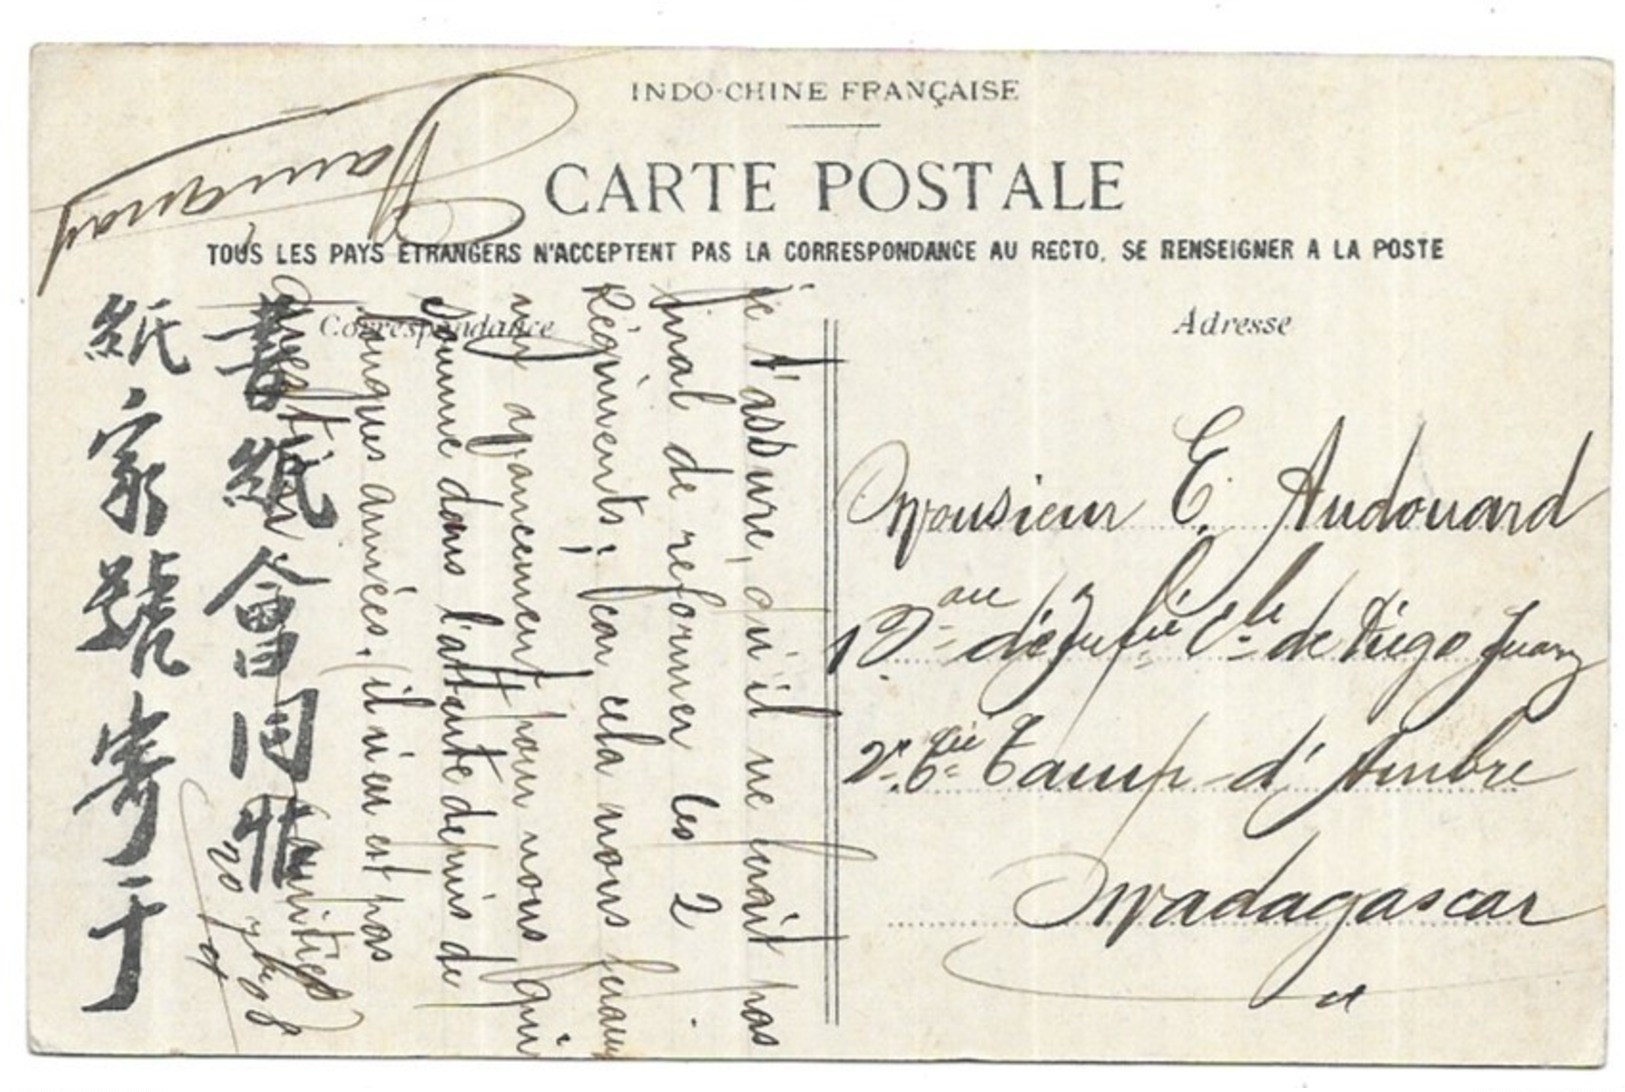 INDO-CHINE FRANÇAISE
CARTE POSTALE
TOUS LES PAYS ETRANGERS N'ACCEPTENT PAS LA CORRESPONDANCE AU RECTO, SE RENSEIGNER A LA POSTE
Correspondance
Adresse
je t'assure, qu'il ne serait pas
mal de reformer les 2
Régiments; car cela nous ferait
un avancement pour nous qui
somme dans l'attente depuis de
longues années. il n'en est pas
20 7bre 08
Monsieur E. Audouard
de Diego Suarez
Camp d'Ambre
Madagascar
書紙會同
紙家號寄于